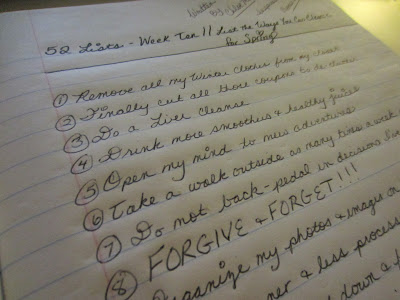 Written by
52 Lists - Week Ten // List the Ways You Can Cleanse
for Spring
① Remove all my Winter Clothes from my closet
② Finally cut all those coupons to be
③ Do a Liver Cleanse
④ Drink more smoothies & healthy juices
⑤ Open my mind to new adventures
⑥ Take a walk outside as many times a week
⑦ Do not back-pedal in decisions
⑧ FORGIVE & FORGET!!!
Organize my photos & images on
& less process
down a